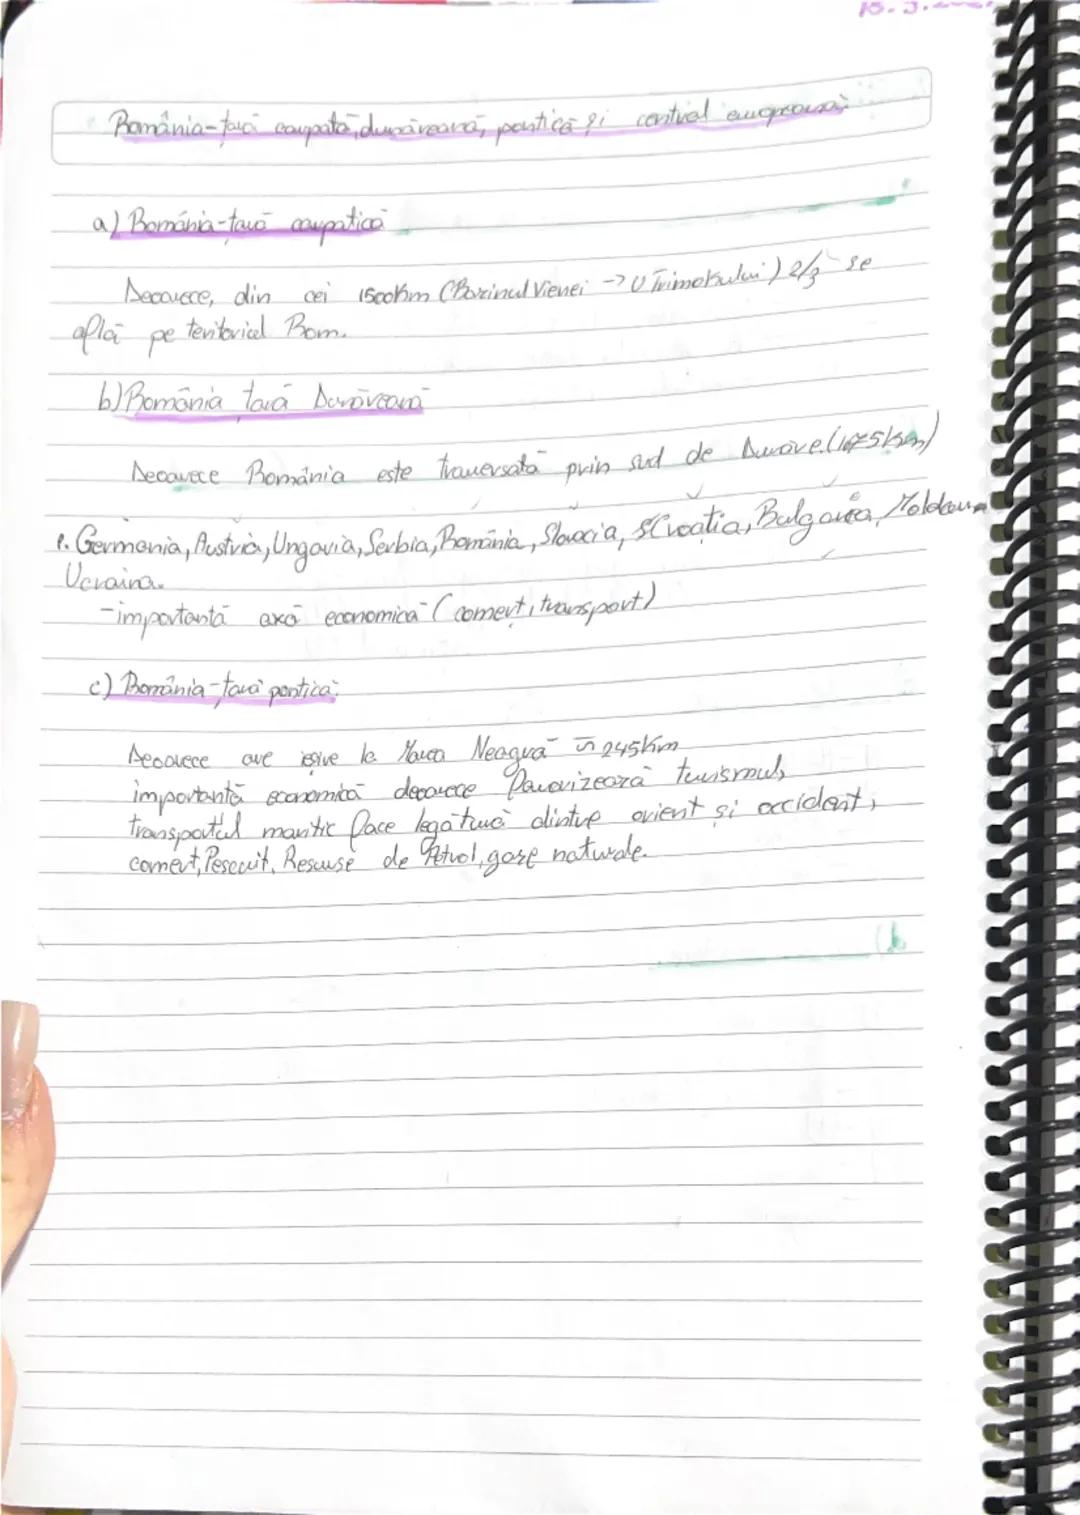 România-țară carpată, dunăreană, pontică și central europeană
a) România-țară carpatică
Deoarece, din cei 1500km (Bazinul Vienei -> V Timokului) 2/3 se
află pe teritoriul Rom.
b) România țară Dunăreană
Deoarece România este traversată prin sud de Dunăre. (1075km)
Germania, Austria, Ungaria, Serbia, România, Slovacia, Croatia, Bulgaria, Moldova
Ucraina.
-importantă axă economică (comerț, transport)
c) România-țară pontică:
Deoarece are ieșire la Marea Neagră 245km
importantă economică deoarece favorizează turismul,
transportul maritic face legătură dintre orient și occident,
comerț, Pescuit, Resurse de Petrol, gaze naturale.